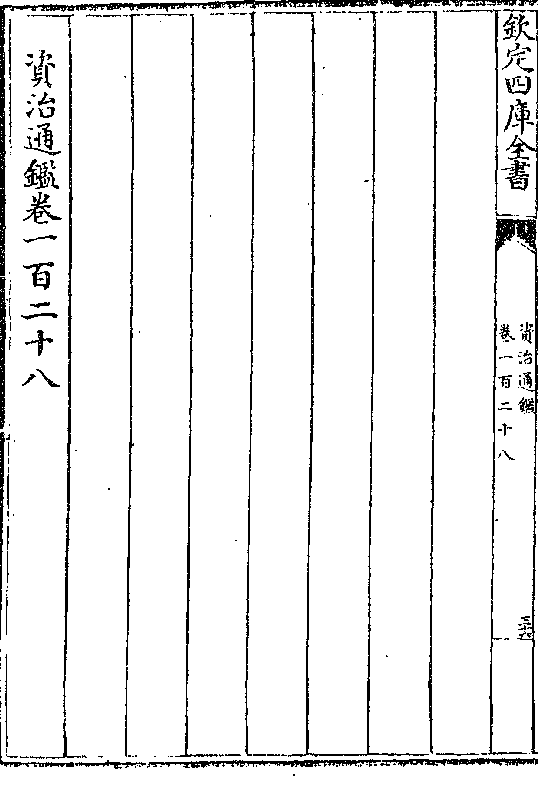 欽定四庫全書
資治通鑑
卷一百二十八
資治通鑑卷一百二十八